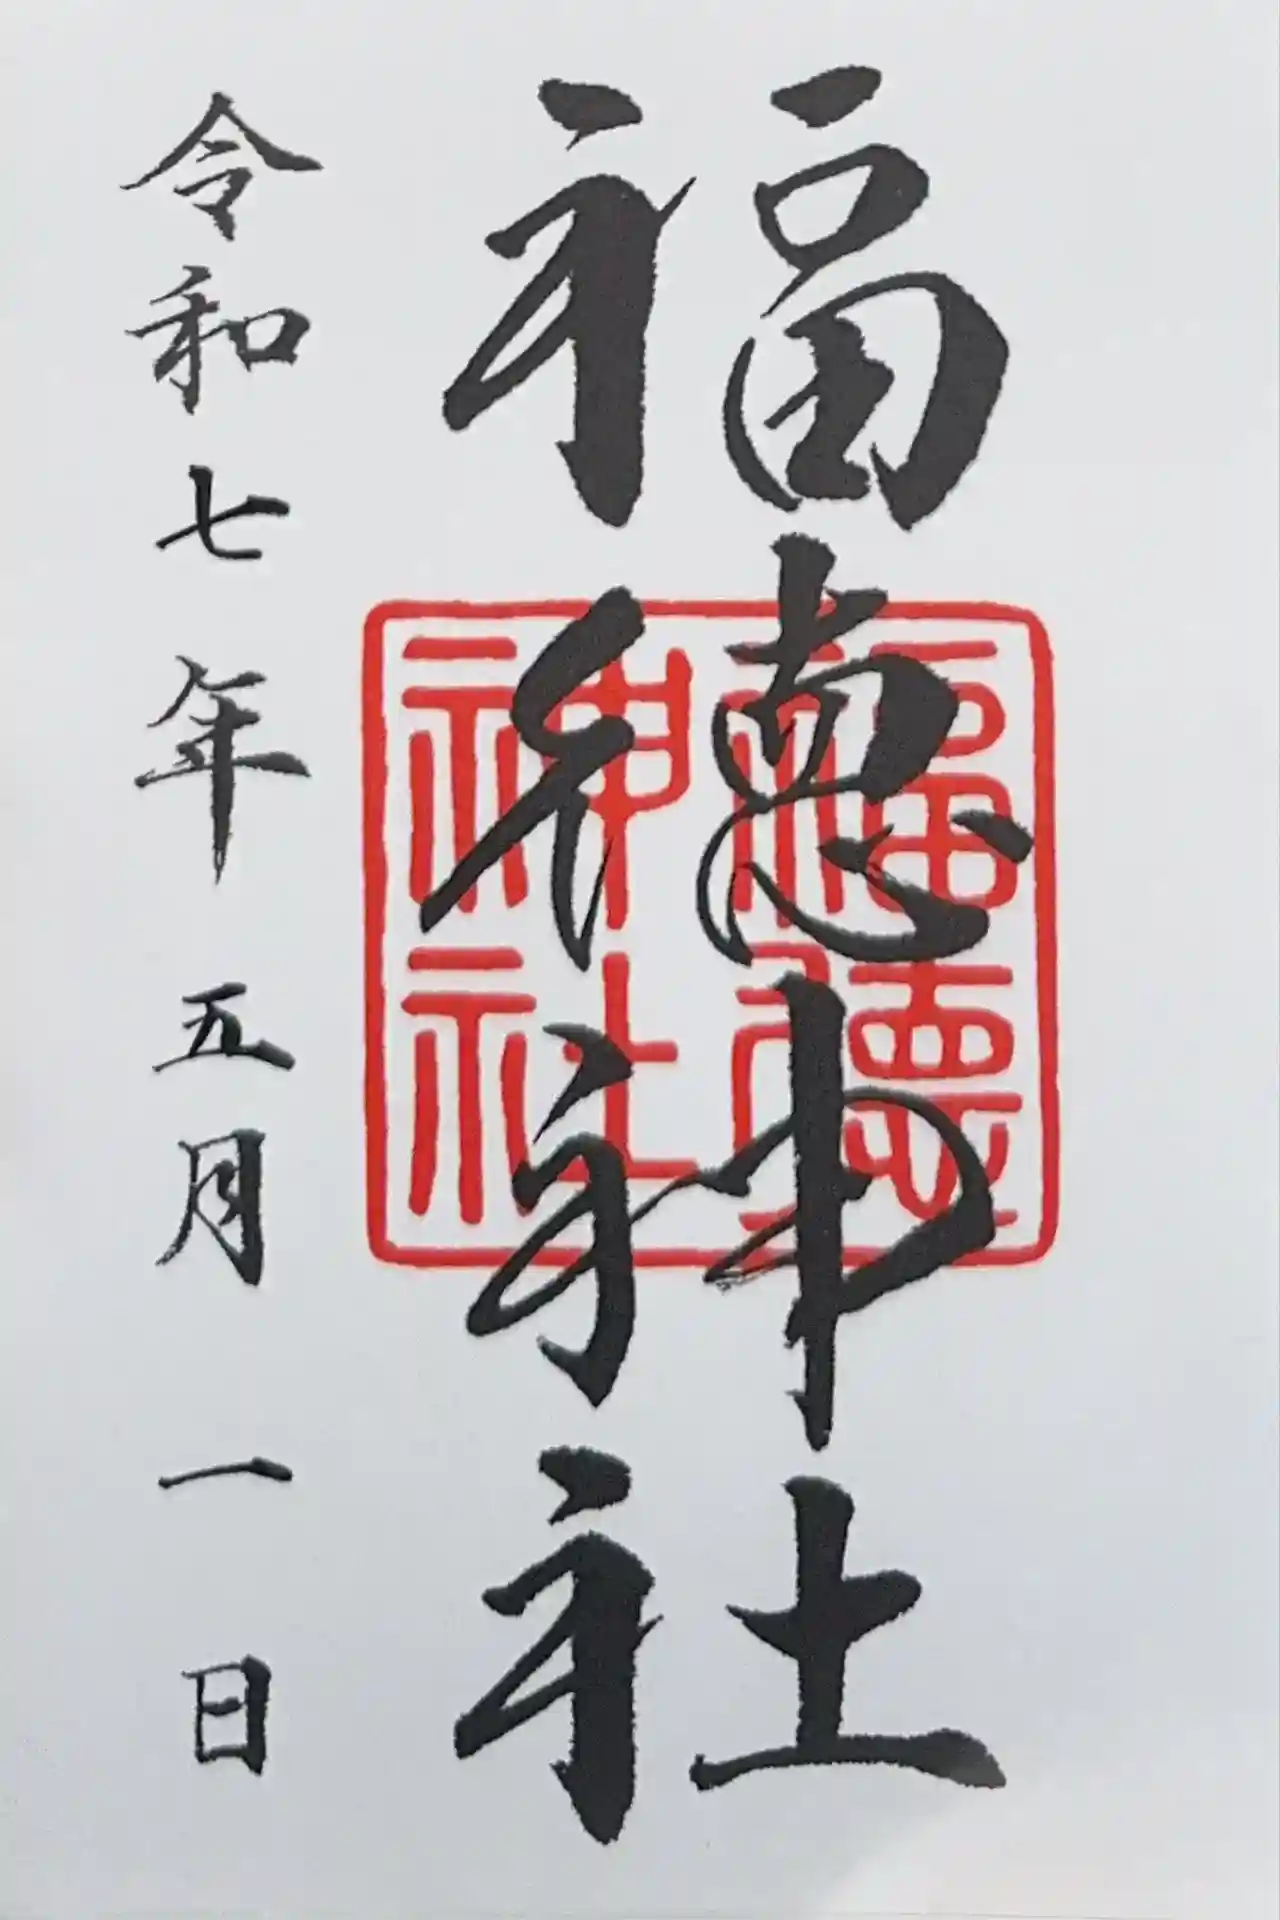 福徳神社
福徳神社
令和七年五月一日